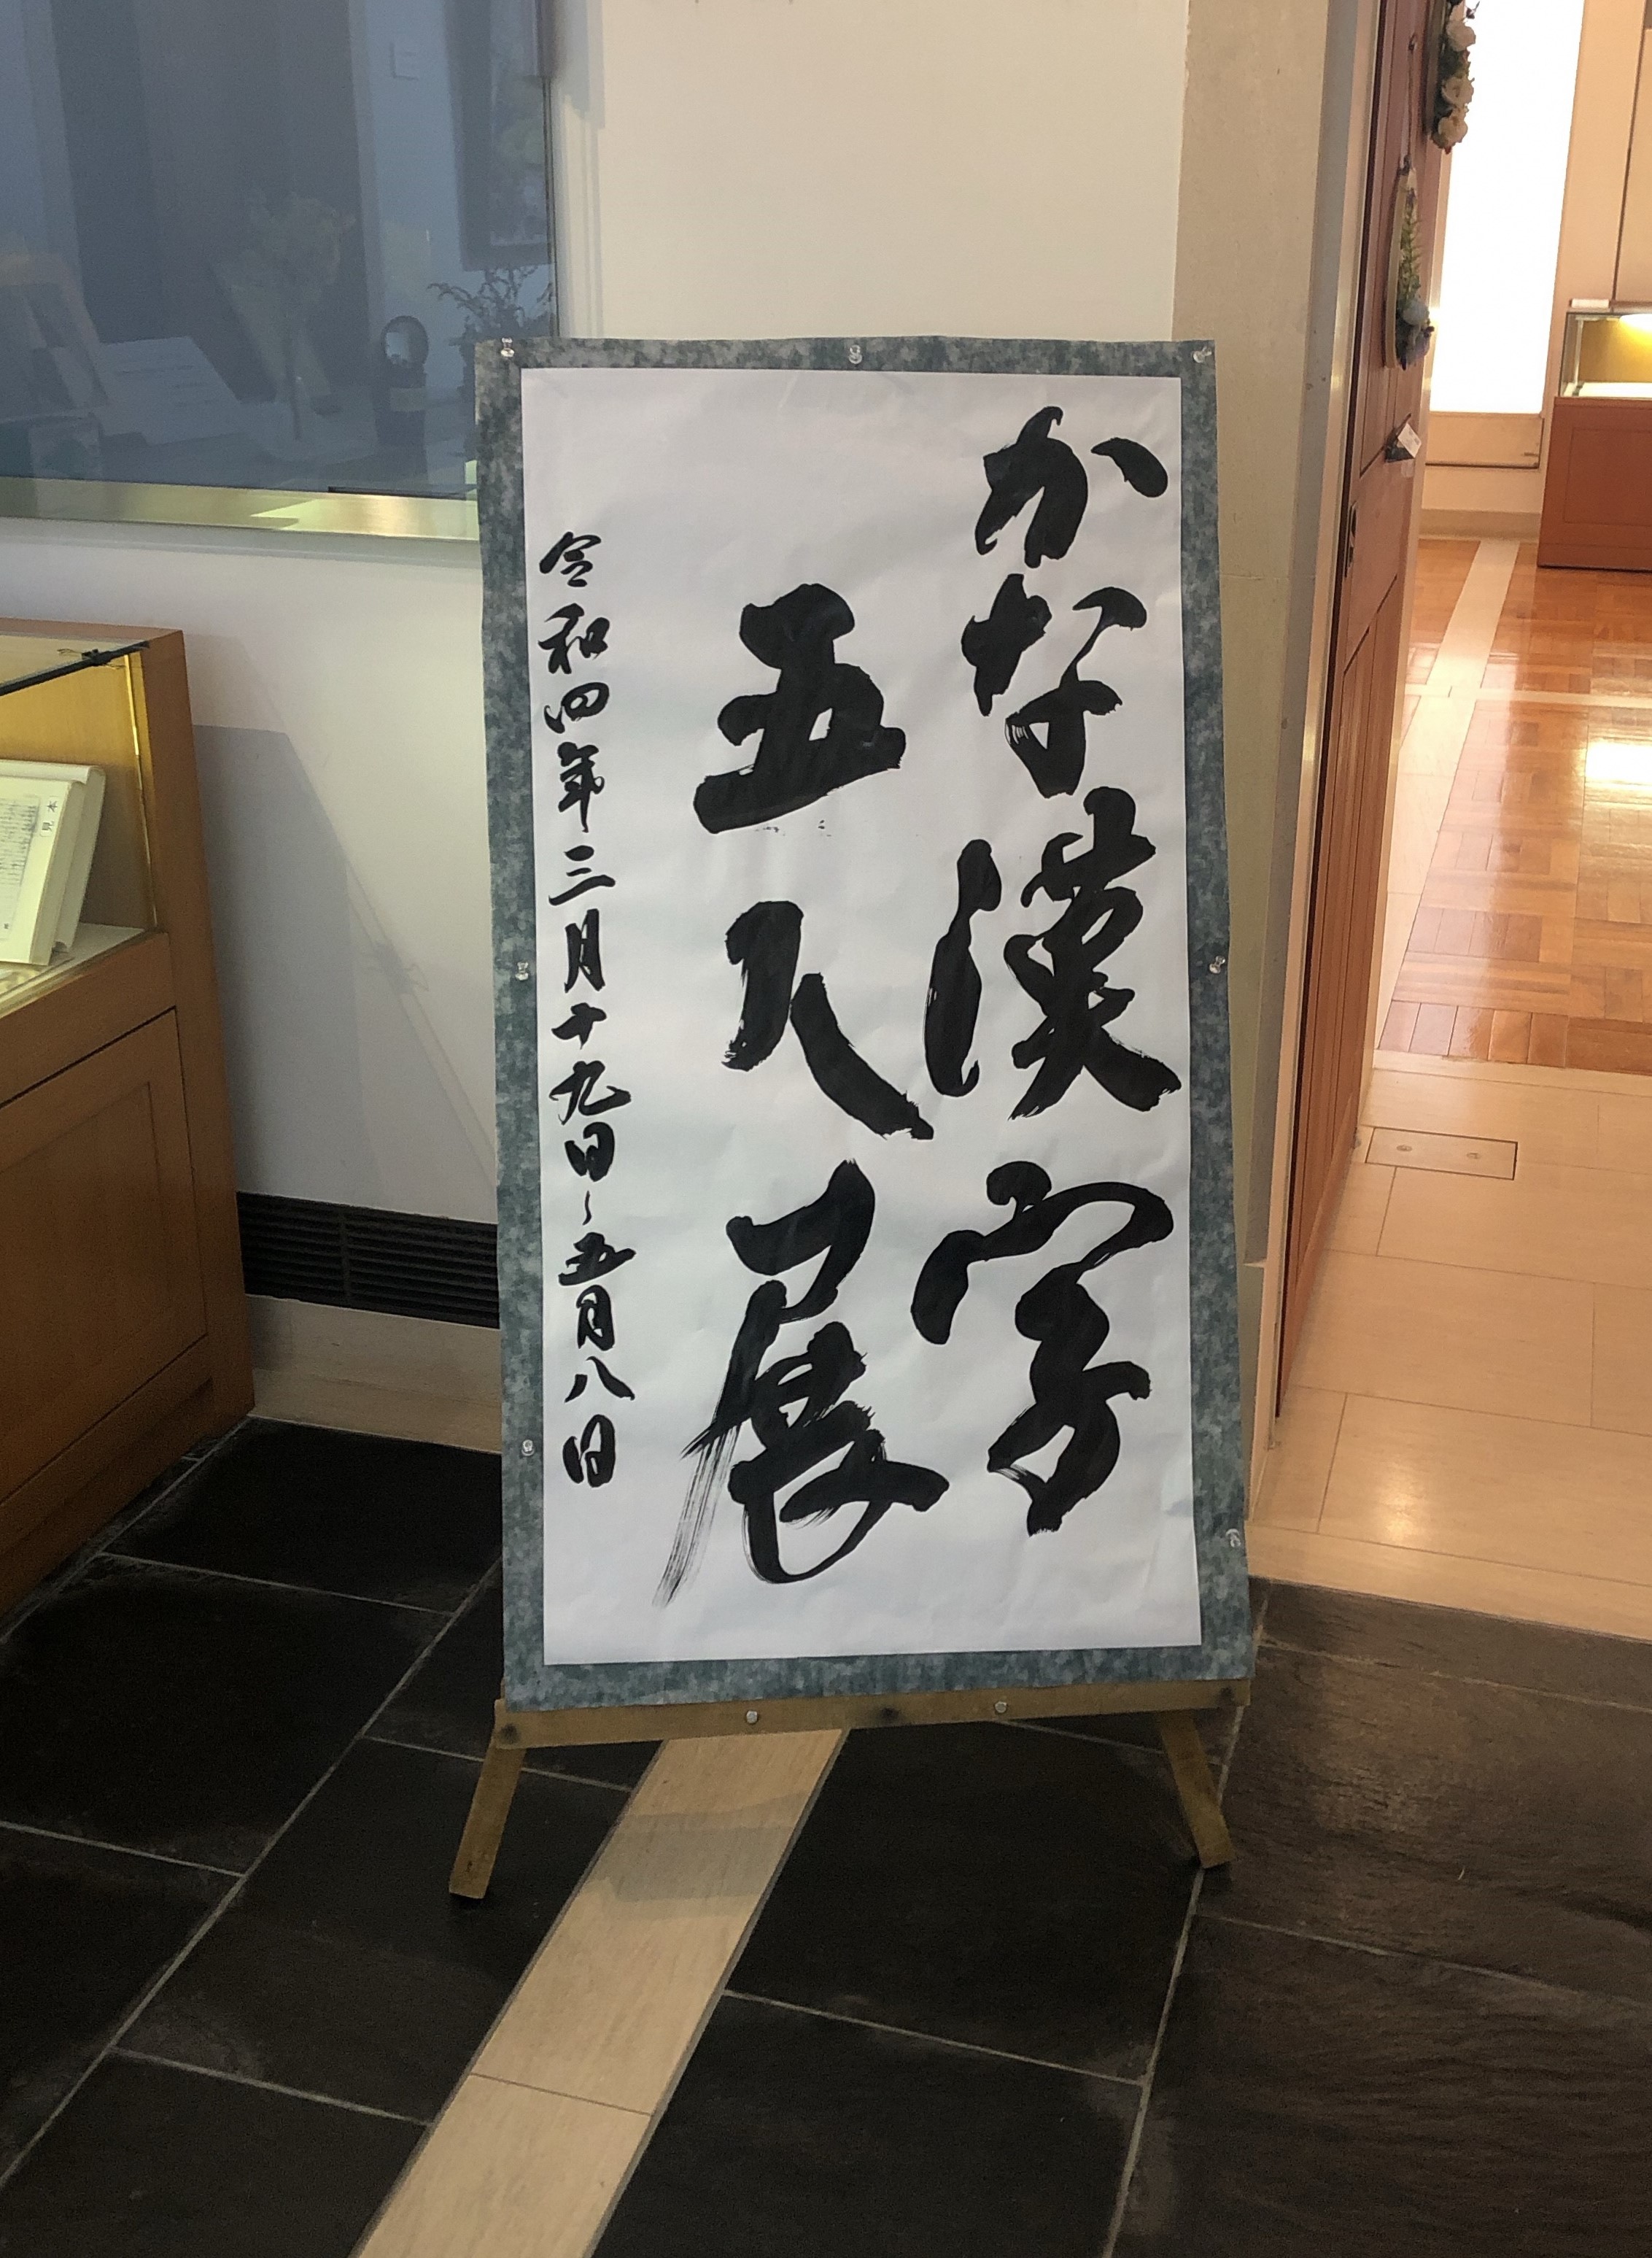 かな漢字
五人展
令和四年三月十九日～五月八日
見本